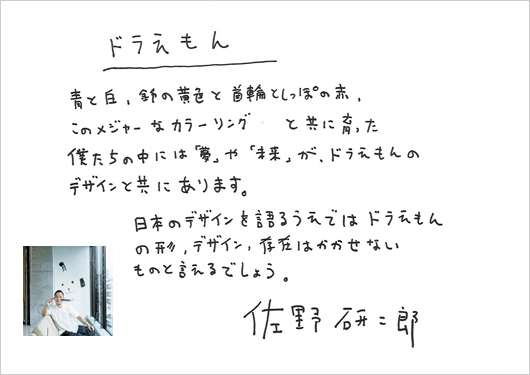 ドラえもん
青と白、鈴の黄色と首輪としっぽの赤、
このメジャーなカラーリング と共に育った
僕たちの中には「夢」や「未来」が、ドラえもんの
デザインと共にあります。
日本のデザインを語るうえではドラえもん
の形、デザイン、存在はかかせない
ものと言えるでしょう。
佐野研二郎